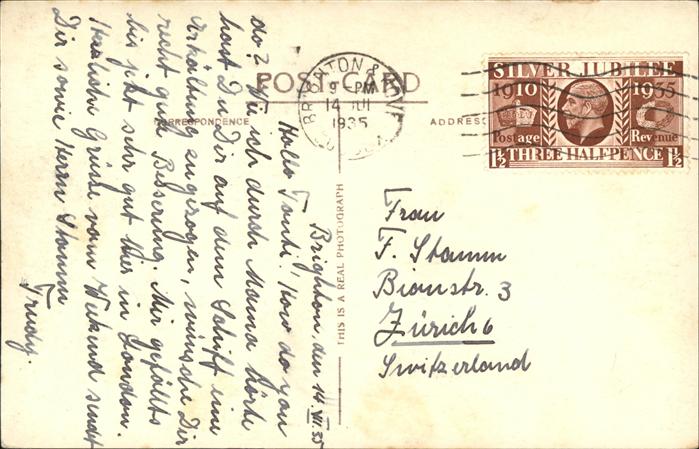 POST-CARD
CORRESPONDENCE
ADDRESS
BRIGHTON & HOVE
9 - PM
14 JUL
1935
SILVER JUBILEE
1910 1935
Postage Revenue
THREE HALFPENCE
1½ 1½
THIS IS A REAL PHOTOGRAPH
Brighton, den 14. VII. 35
Hallo Tanti! How do you
do? Wie ich durch Mama hörte
hast Du Dir auf dem Schiff eine
Erkältung zugezogen, wünsche Dir
recht gute Besserung. Mir gefällts
bis jetzt sehr gut hier in London.
Herzliche Grüsse vom Weekend sendt
Dir sowie Herrn Stamm
Trudy.
Frau
F. Stamm
Bionstr. 3
Zürich 6
Switzerland